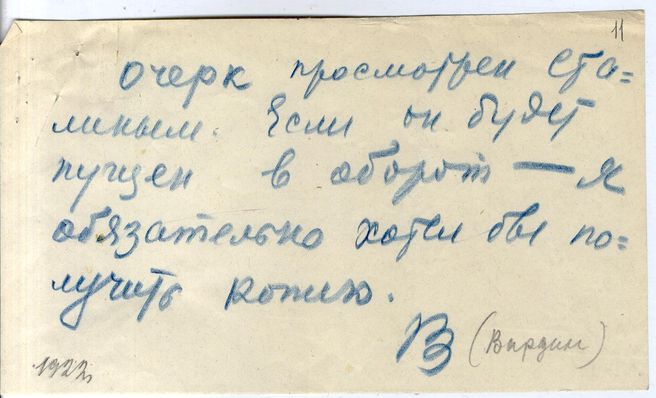 11
Очерк просмотрен Ста=
линым. Если он будет
пущен в оборот — я
обязательно хотел бы по=
лучить копию.
В (Вардин)
1922